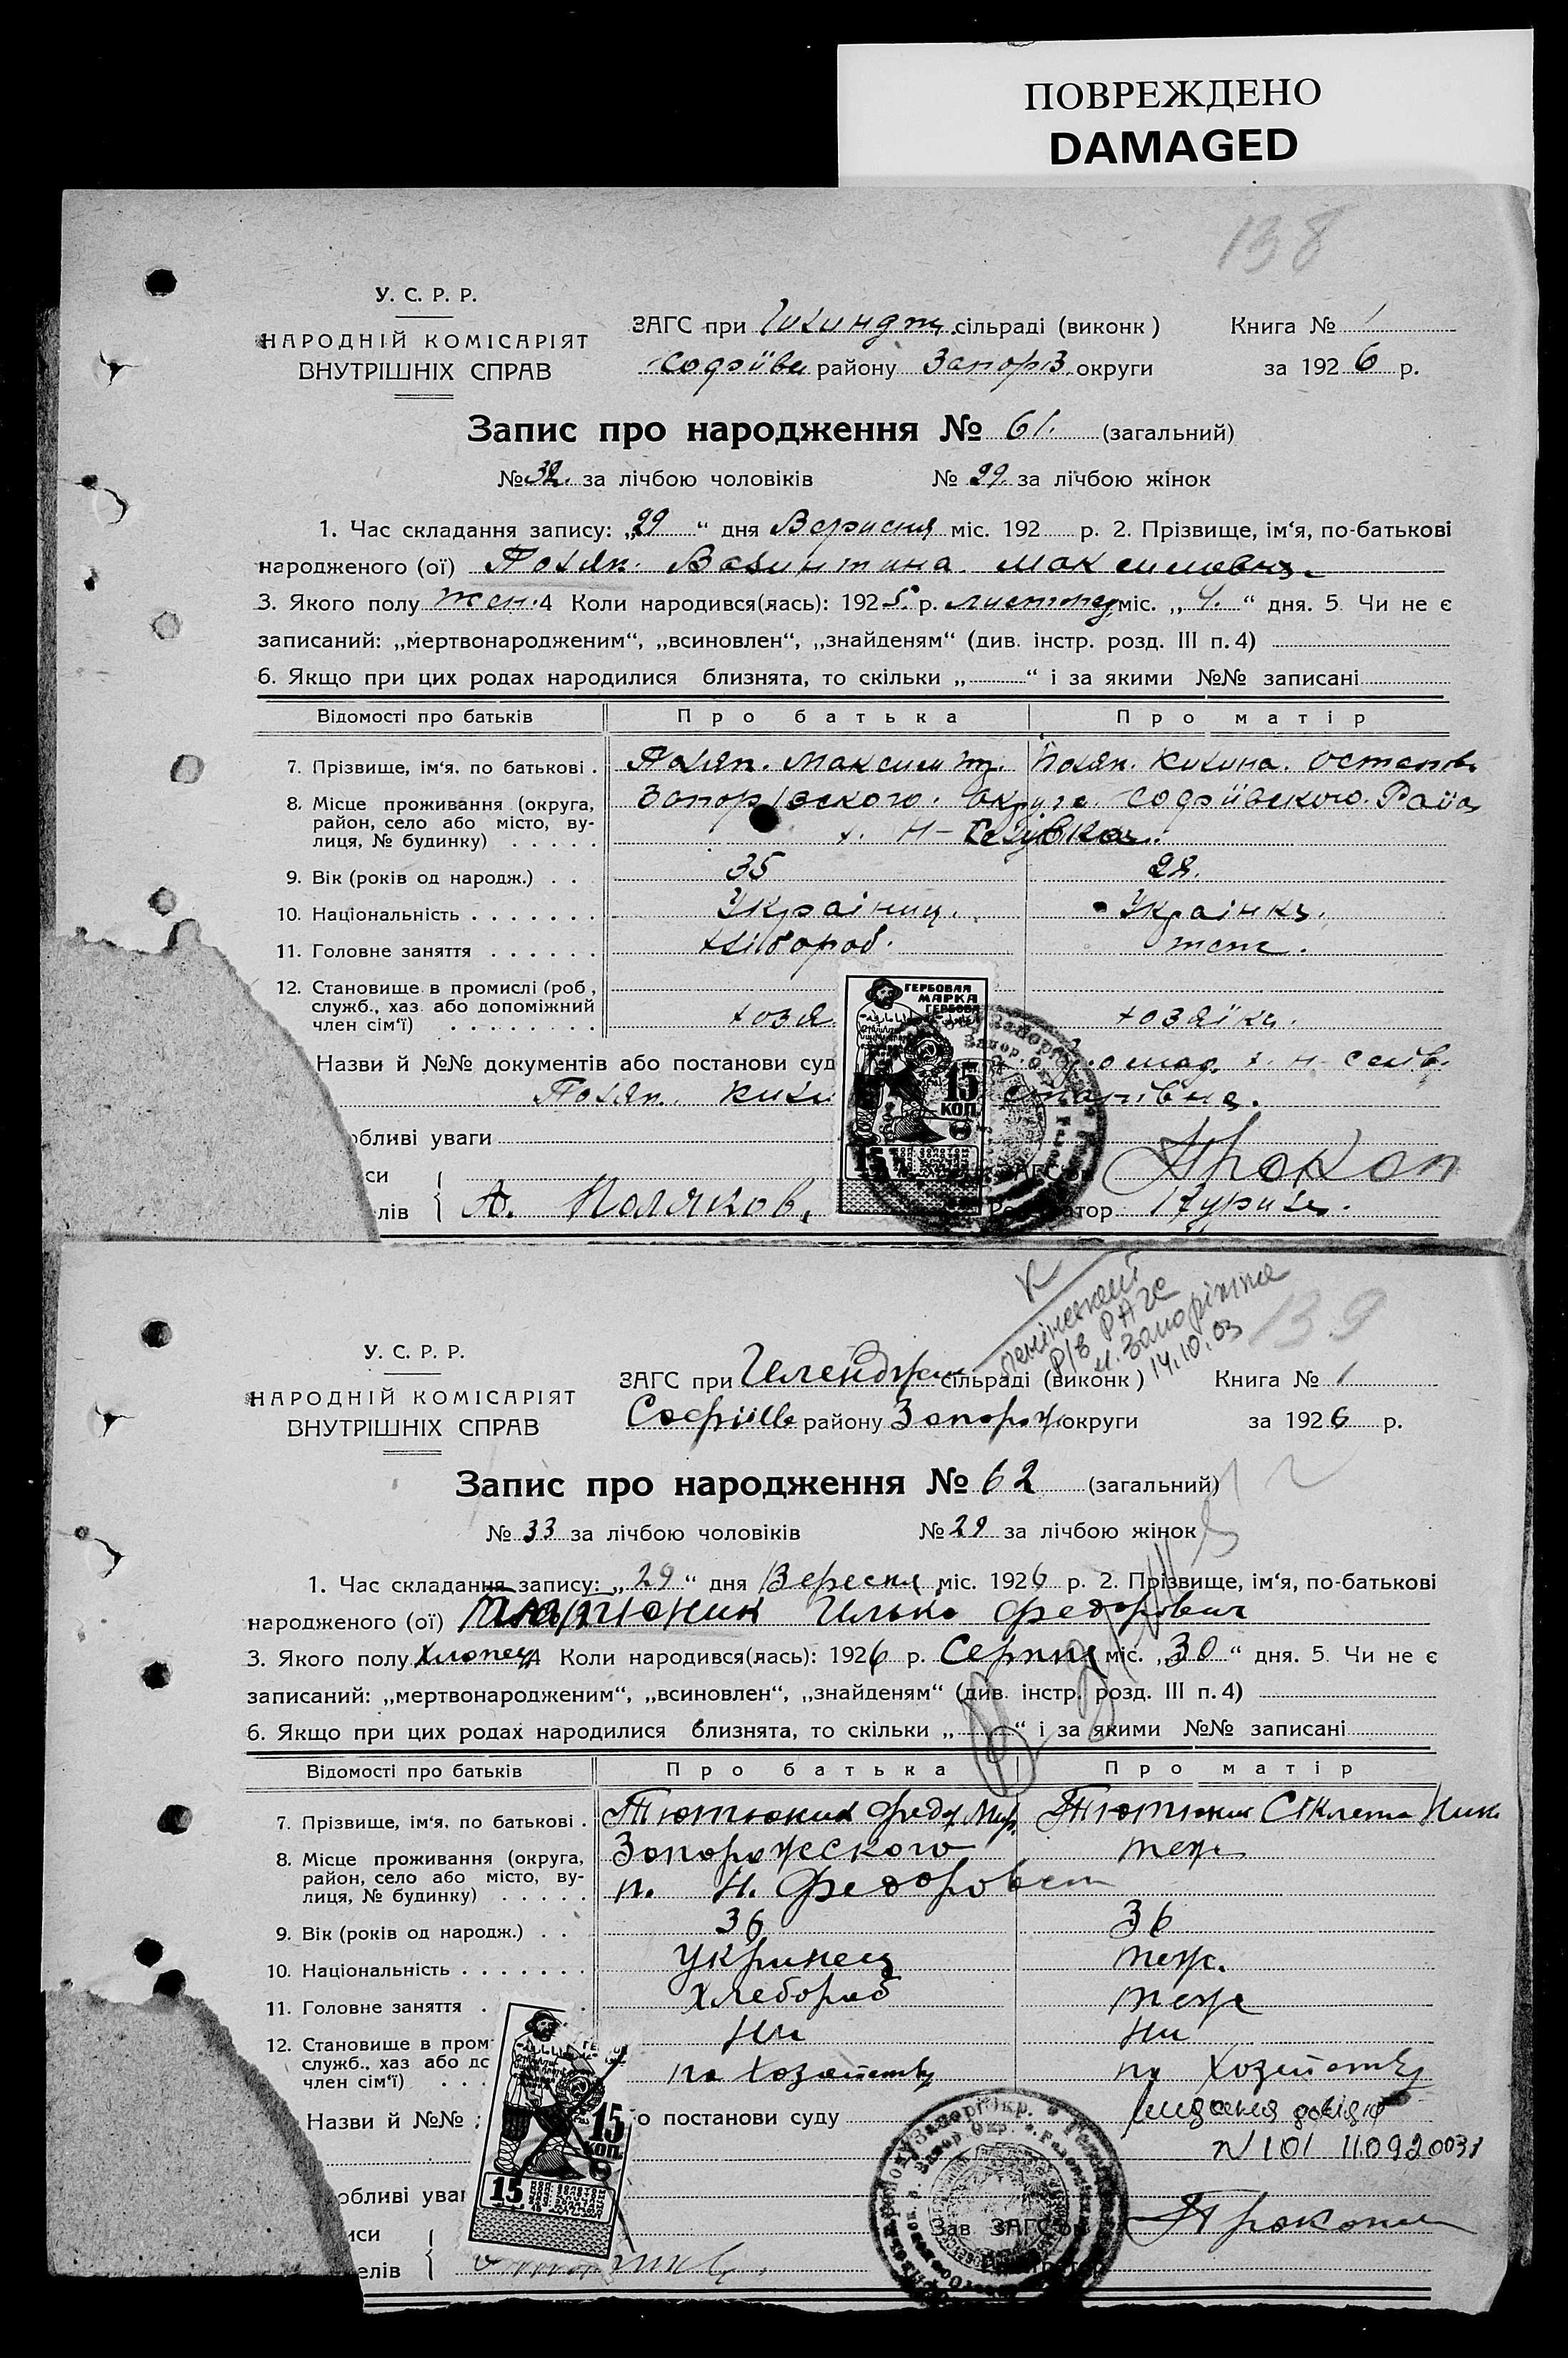 ПОВРЕЖДЕНО
DAMAGED
138
У. С. Р. Р.
НАРОДНІЙ КОМІСАРІЯТ
ВНУТРІШНІХ СПРАВ
ЗАГС при сільраді (виконк) Книга № 1
району Запоріз. округи за 1926 р.
Запис про народження № 61. (загальний)
№ 32. за лічбою чоловіків № 29. за лічбою жінок
1. Час складання запису: „29“ дня Вересня міс. 192 р. 2. Прізвище, ім‘я, по-батькові
народженого (ої) Поляк. Валинтина. Максимовна
3. Якого полу жен. 4 Коли народився(лась): 1925 р. листопад міс. „4.“ дня. 5 Чи не є
записаний: „мертвонародженим“, „всиновлен“, „знайденям“ (див. інстр. розд. III п. 4)
6. Якщо при цих родах народилися близнята, то скільки „ “ і за якими №№ записані
Відомості про батьків Про батька Про матір
7. Прізвище, ім‘я, по батькові . Поляк. Максим Поляк. Килина. Остапов
8. Місце проживання (округа, Запорізского. Округа. Софіівського. Райо
район, село або місто, ву-
лиця, № будинку) . . . . . х. Н-
9. Вік (років од народж.) . . 35 28.
10. Національність . . . . . . . Украіниц. Украінка.
11. Головне заняття . . . . . . хлібороб. теж.
12. Становище в промислі (роб,
служб., хаз або допоміжний
член сім‘ї) . . . . . . . . хозя хозяїка.
Назви й №№ документів або постанови суд х. Н-
Поляк. Кили стапівна.
обливі уваги
ГЕРБОВАЯ
МАРКА
15
КОП.
15
си Прокоп
лів А. Поляков.
139
Ленінський
Р/в РАГС
м. Запоріжжя
14.10.03
У. С. Р. Р.
НАРОДНІЙ КОМІСАРІЯТ
ВНУТРІШНІХ СПРАВ
ЗАГС при сільраді (виконк) Книга № 1
Софіїв району Запорож округи за 1926 р.
Запис про народження № 62 (загальний)
№ 33 за лічбою чоловіків № 29 за лічбою жінок
1. Час складання запису: „29“ дня Вересня міс. 1926 р. 2. Прізвище, ім‘я, по-батькові
народженого (ої) Илько Федорович
3. Якого полу Хлопец 4 Коли народився(лась): 1926 р. Серпня міс. „30“ дня. 5 Чи не є
записаний: „мертвонародженим“, „всиновлен“, „знайденям“ (див. інстр. розд. III п. 4)
6. Якщо при цих родах народилися близнята, то скільки „ “ і за якими №№ записані
Відомості про батьків Про батька Про матір
7. Прізвище, ім‘я, по батькові . Тютюник Федор Тютюник
8. Місце проживання (округа, Запорожеского теж
район, село або місто, ву-
лиця, № будинку) . . . . . п. Н. Федоровст
9. Вік (років од народж.) . . 36 36
10. Національність . . . . . . . Укринец теж.
11. Головне заняття . Хлебороб теж
12. Становище в пром Ни Ни
служб., хаз або до
член сім‘ї) . . . по Хозяйству по Хозяйству
Назви й №№ о постанови суду видана довідка
N 101 11092003
обливі уваг
15
КОП.
15
иси Зав ЗАГС‘ом Прокоп
елів